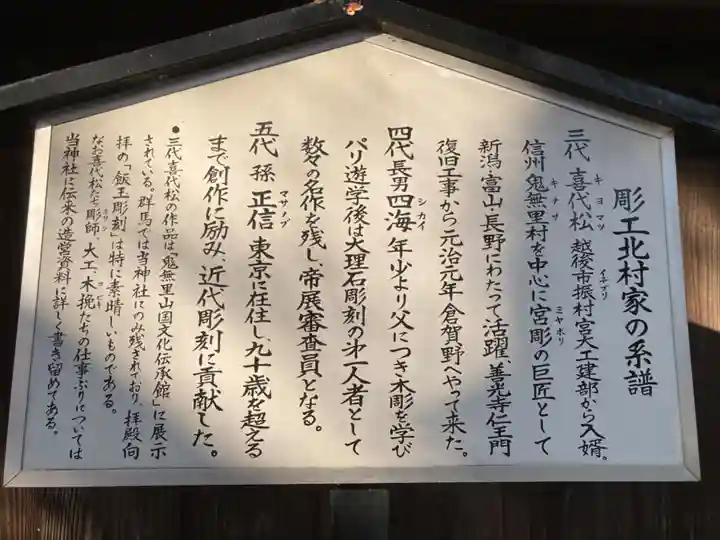 彫工北村家の系譜
三代 喜代松 越後市振村宮大工建部から入婿。
キヨマツ
イチブリ
信州 鬼無里村を中心に宮彫の巨匠として
キナサ
ミヤホリ
新潟・富山・長野にわたって活躍、善光寺仁王門
復旧工事から元治元年倉賀野へやって来た。
四代 長男 四海 年少より父につき木彫を学び
シカイ
パリ遊学後は大理石彫刻の才一人者として
数々の名作を残し、帝展審査員となる。
五代 孫 正信 東京に在住し、九十歳を超える
マサノブ
まで創作に励み、近代彫刻に貢献した。
●三代喜代松の作品は「鬼無里山国文化伝承館」に展示
されている。群馬では当神社にのみ残されており、拝殿向
拝の「飯玉彫刻」は特に素晴しいものである。
なお喜代松たち彫師、大工、木挽たちの仕事ぶりについては
ホリシ
コビキ
当神社に伝来の造営資料に詳しく書き留めてある。